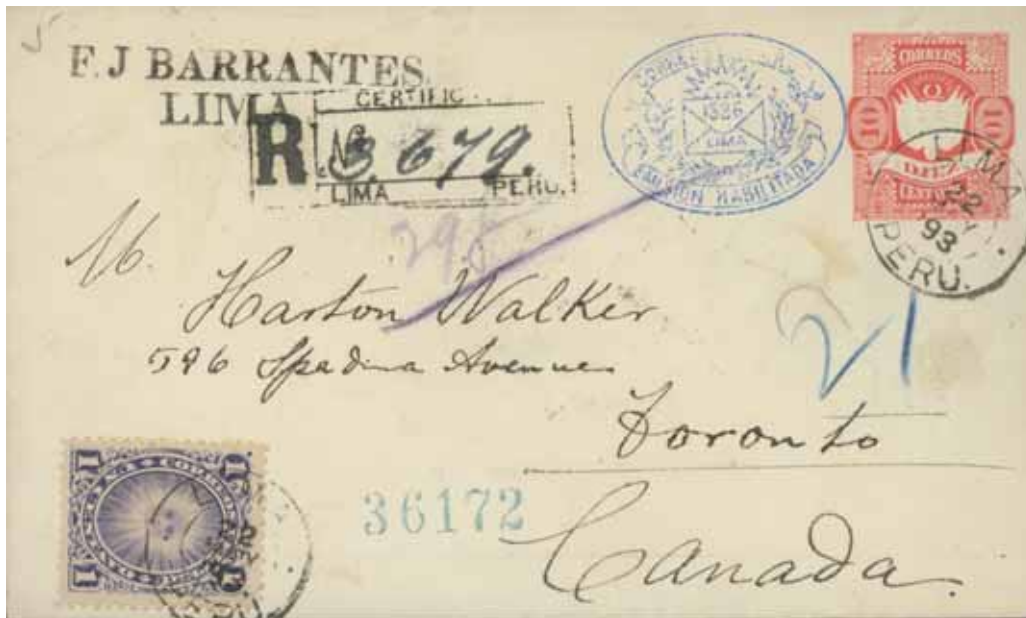 F. J BARRANTES.
LIMA
CERTIFIC
R No 3.679.
LIMA PERU.
LIMA
EMISION HABILITADA
CORREOS
10 10
LIMA
22
93
PERU.
298
M. Harton Walker
596 Spadina Avenue
21
Toronto
Canada
36172
1 1
1 1